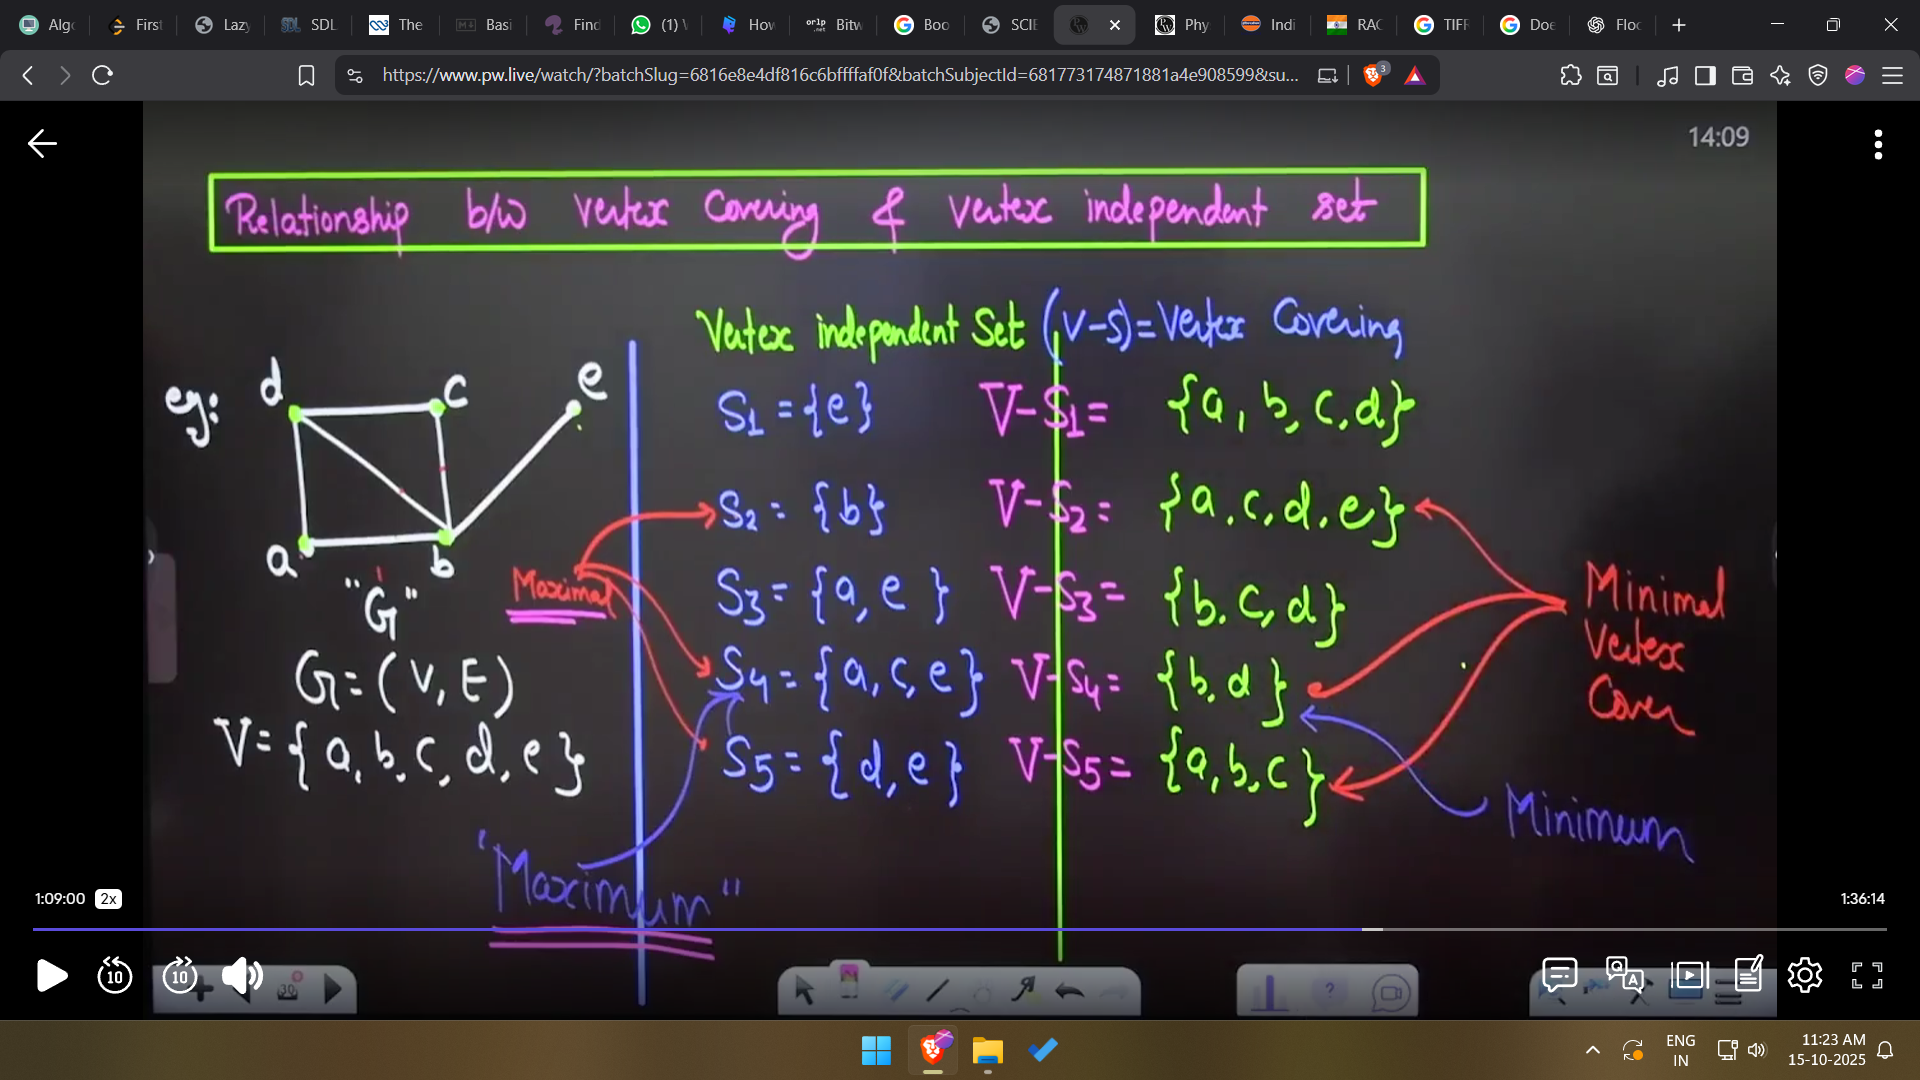 Algo
First
Lazy
SDL
The
Basi
Find
(1)
How
Bitw
Boo
SCIE
Phy
Indi
RAC
TIFR
Doe
Floc
https://www.pw.live/watch/?batchSlug=6816e8e4df816c6bffffaf0f&batchSubjectId=681773174871881a4e908599&su...
3
14:09
Relationship b/w vertex Covering & vertex independent set
Vertex independent Set (V-S)=Vertex Covering
eg:
d
c
e
a
b
"G"
G=(V,E)
V={a,b,c,d,e}
S1={e} V-S1= {a,b,c,d}
S2={b} V-S2= {a,c,d,e}
S3={a,e} V-S3= {b,c,d}
S4={a,c,e} V-S4= {b,d}
S5={d,e} V-S5= {a,b,c}
Maximal
"Maximum"
Minimal
Vertex
Cover
Minimum
1:09:00 2x
1:36:14
10
10
30
ENG
IN
11:23 AM
15-10-2025